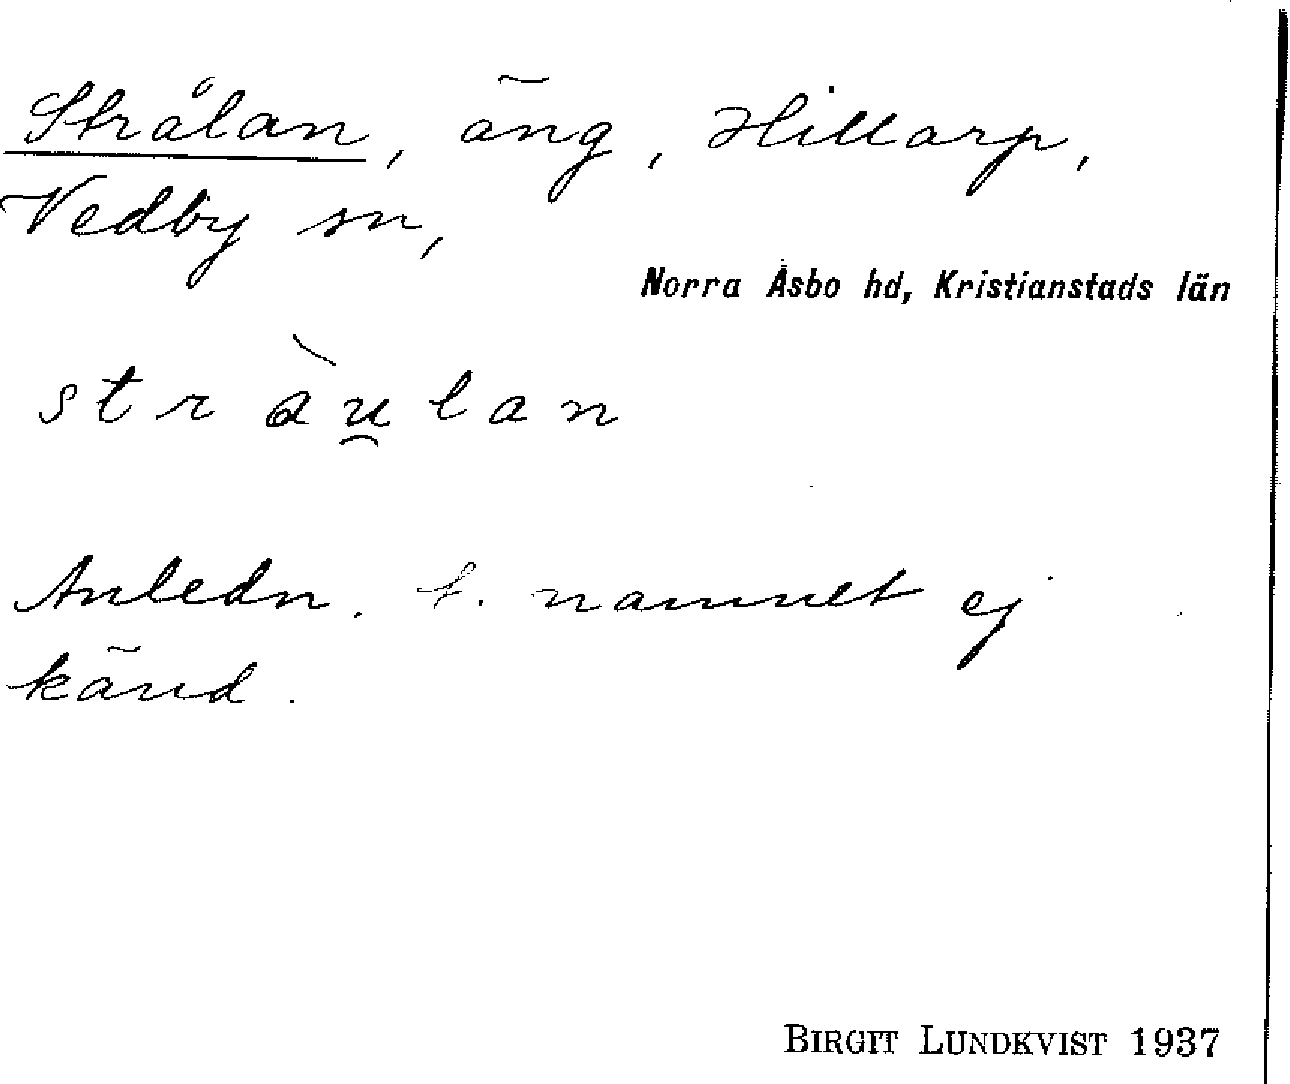 Strålan, äng, Hillarp,
Vedby sn,
Norra Åsbo hd, Kristianstads län
stràu̯lan
Anledn. t. namnet ej
känd.
BIRGIT LUNDKVIST 1937